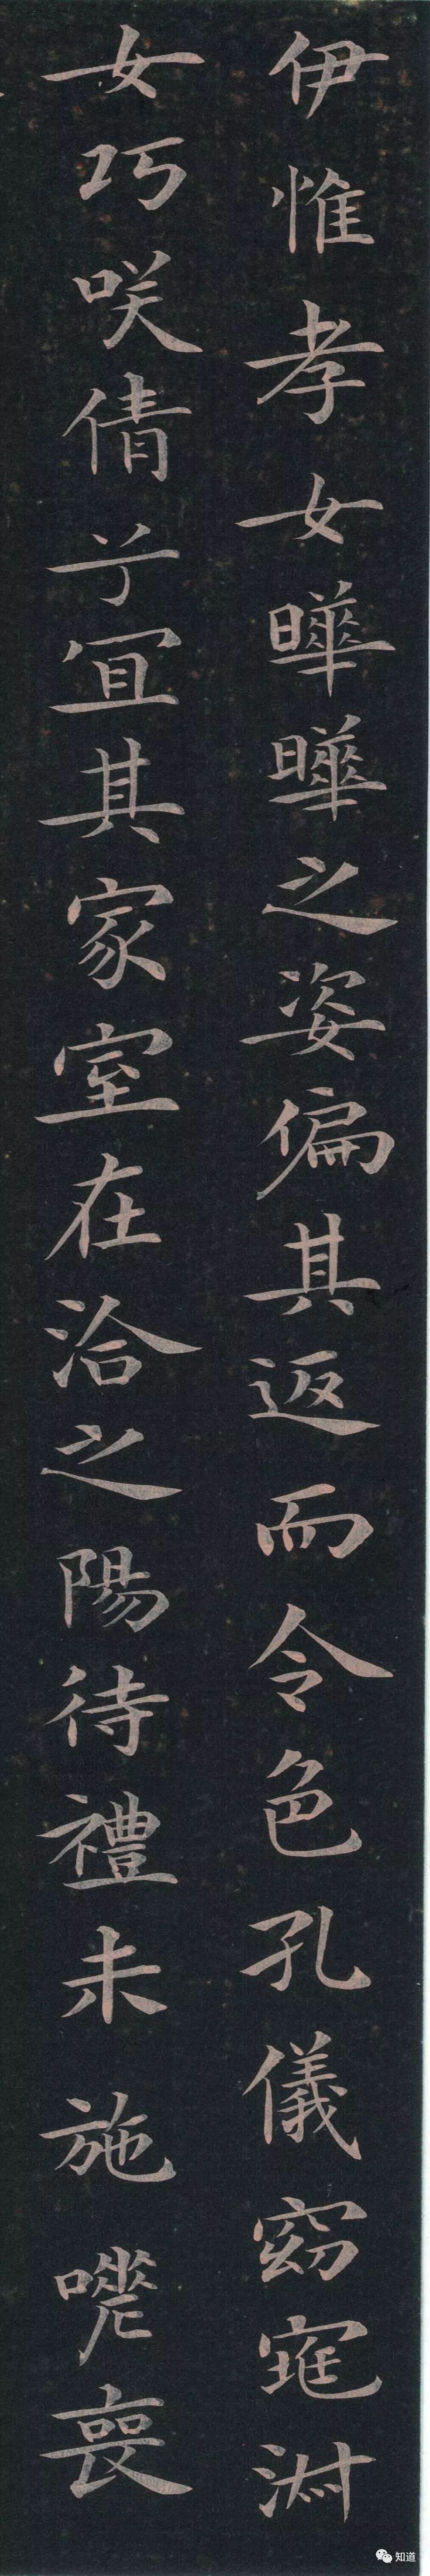 伊惟孝女曄曄之姿偏其返而令色孔儀窈窕淑
女巧咲倩兮冝其家室在洽之陽待禮未施嗟喪
知道